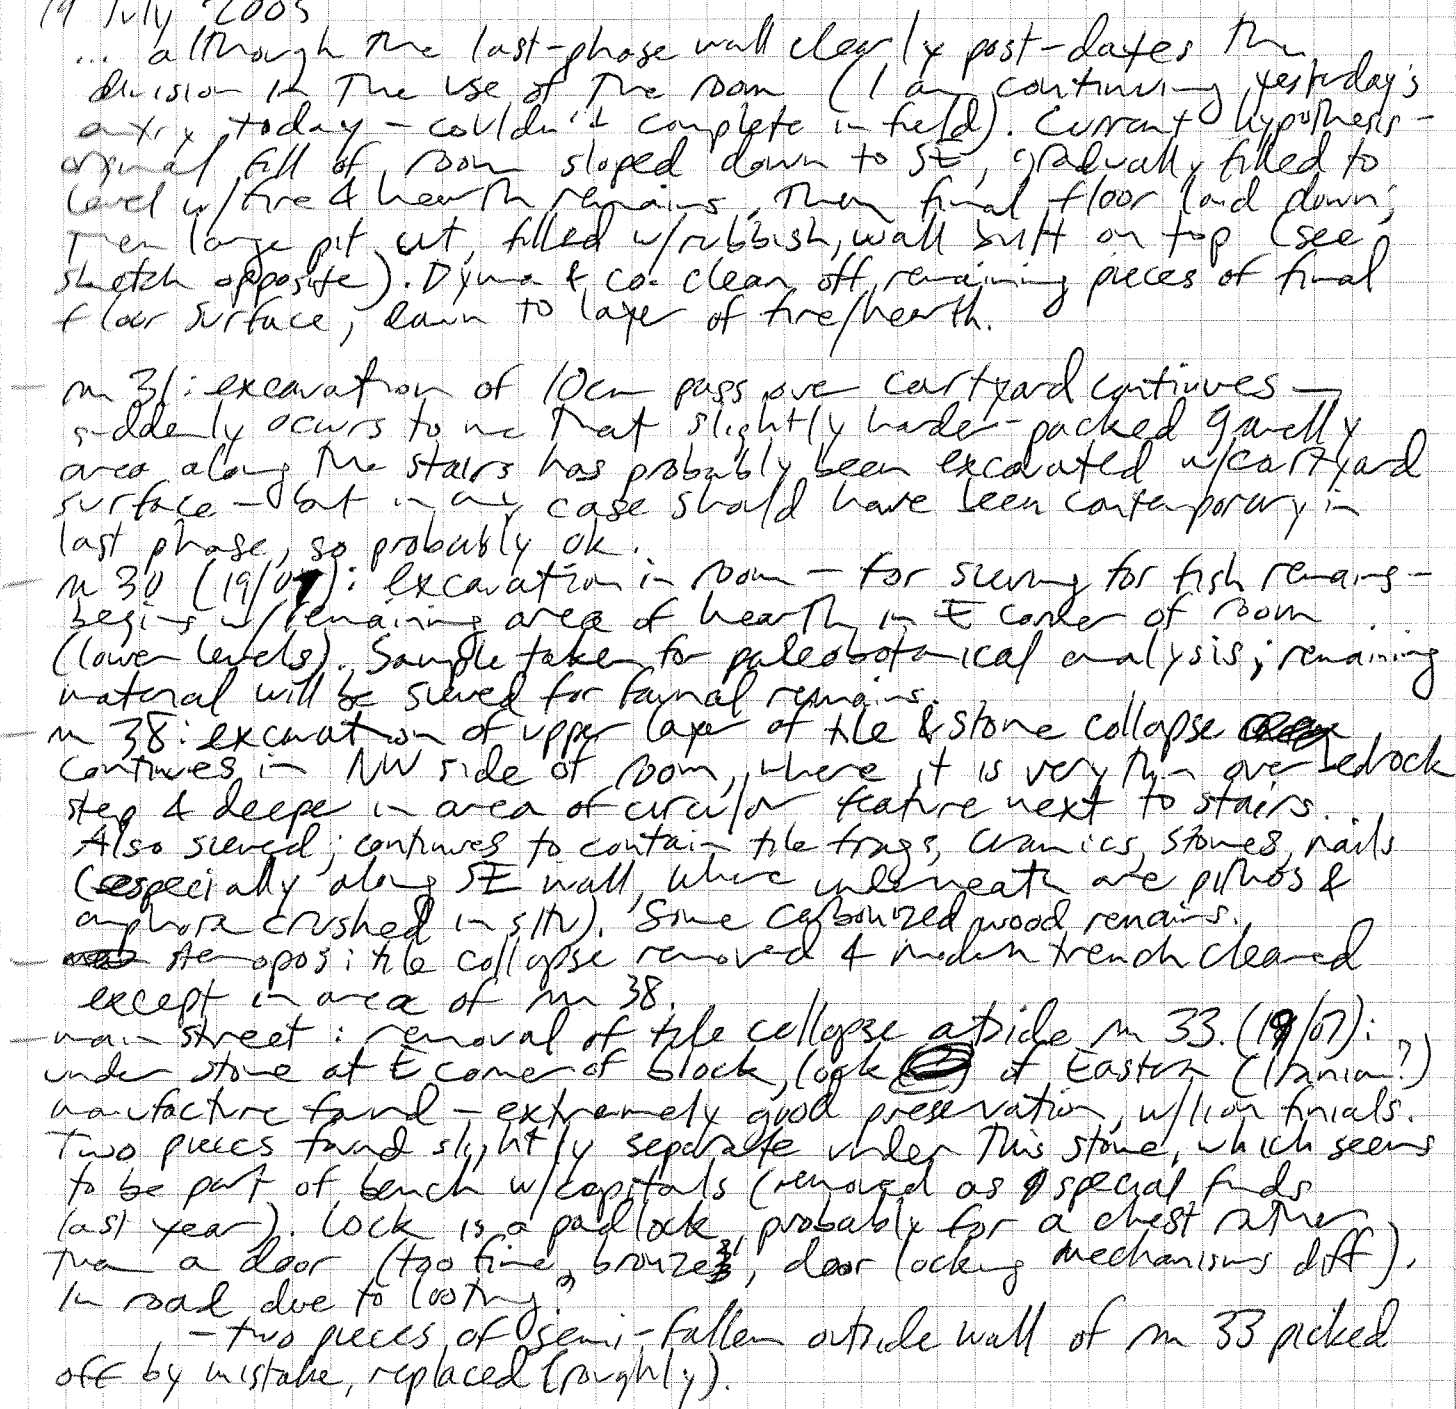 19 July 2005
... although the last-phase wall clearly post-dates the
division in the use of the room (I am continuing yesterday's
entry today - couldn't complete in field). Current hypothesis -
original fill of room sloped down to SE, gradually filled to
level w/fire & hearth remains, then final floor laid down;
then large pit cut, filled w/rubbish, wall built on top (see
sketch opposite). Dyma & co. clean off remaining pieces of final
floor surface, down to layer of fire/hearth.
rm 31: excavation of 10cm pass over courtyard continues -
suddenly occurs to me that slightly harder-packed gravelly
area along the stairs has probably been excavated w/courtyard
surface - but in any case should have been contemporary in
last phase, so probably ok.
rm 30 (19/07): excavation in room - for sieving for fish remains -
begins w/remaining area of hearth in E corner of room
(lower levels). Sample taken for paleobotanical analysis; remaining
material will be sieved for faunal remains.
rm 38: excavation of upper layer of tile & stone collapse
continues in NW side of room, where it is very thin over bedrock
step & deeper in area of circular feature next to stairs.
Also sieved; continues to contain tile frags, ceramics, stones, nails
(especially along SE wall, where underneath are pithos &
amphora crushed in situ). Some carbonized wood remains.
stenopos: tile collapse removed & modern trench cleaned
except in area of rm 38.
main street: removal of tile collapse outside rm 33. (19/07):
under stone at E corner of block, lock of Eastern (Iranian?)
manufacture found - extremely good preservation, w/lion finials.
Two pieces found slightly separate under this stone, which seems
to be part of bench w/capitals (removed as special finds
last year). Lock is a padlock, probably for a chest rather
than a door (too fine, bronze, door locking mechanisms diff).
In road due to looting?
- two pieces of semi-fallen outside wall of rm 33 picked
off by mistake, replaced (roughly).